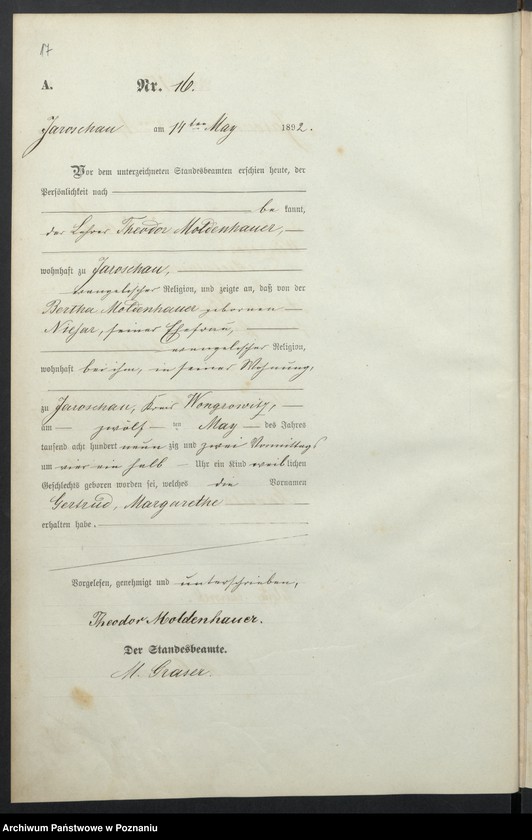 17
A.
Nr. 16.
Jaroschau am 14ten May 1892.
Vor dem unterzeichneten Standesbeamten erschien heute, der
Persönlichkeit nach
be kannt,
der Lehrer Theodor Moldenhauer,
wohnhaft zu Jaroschau,
evangelischer Religion, und zeigte an, daß von der
Bertha Moldenhauer geborenen
seiner Ehefrau,
evangelischer Religion,
wohnhaft bei ihm, in seiner Wohnung,
zu Jaroschau, Kreis Wongrowitz,
am zwölf ten May des Jahres
tausend acht hundert neun zig und zwei Vormittags
um vier ein halb Uhr ein Kind weib lichen
Geschlechts geboren worden sei, welches die Vornamen
Gertrud, Margarethe
erhalten habe.
Vorgelesen, genehmigt und unterschrieben,
Theodor Moldenhauer.
Der Standesbeamte.
M. Graser.
Archiwum Państwowe w Poznaniu